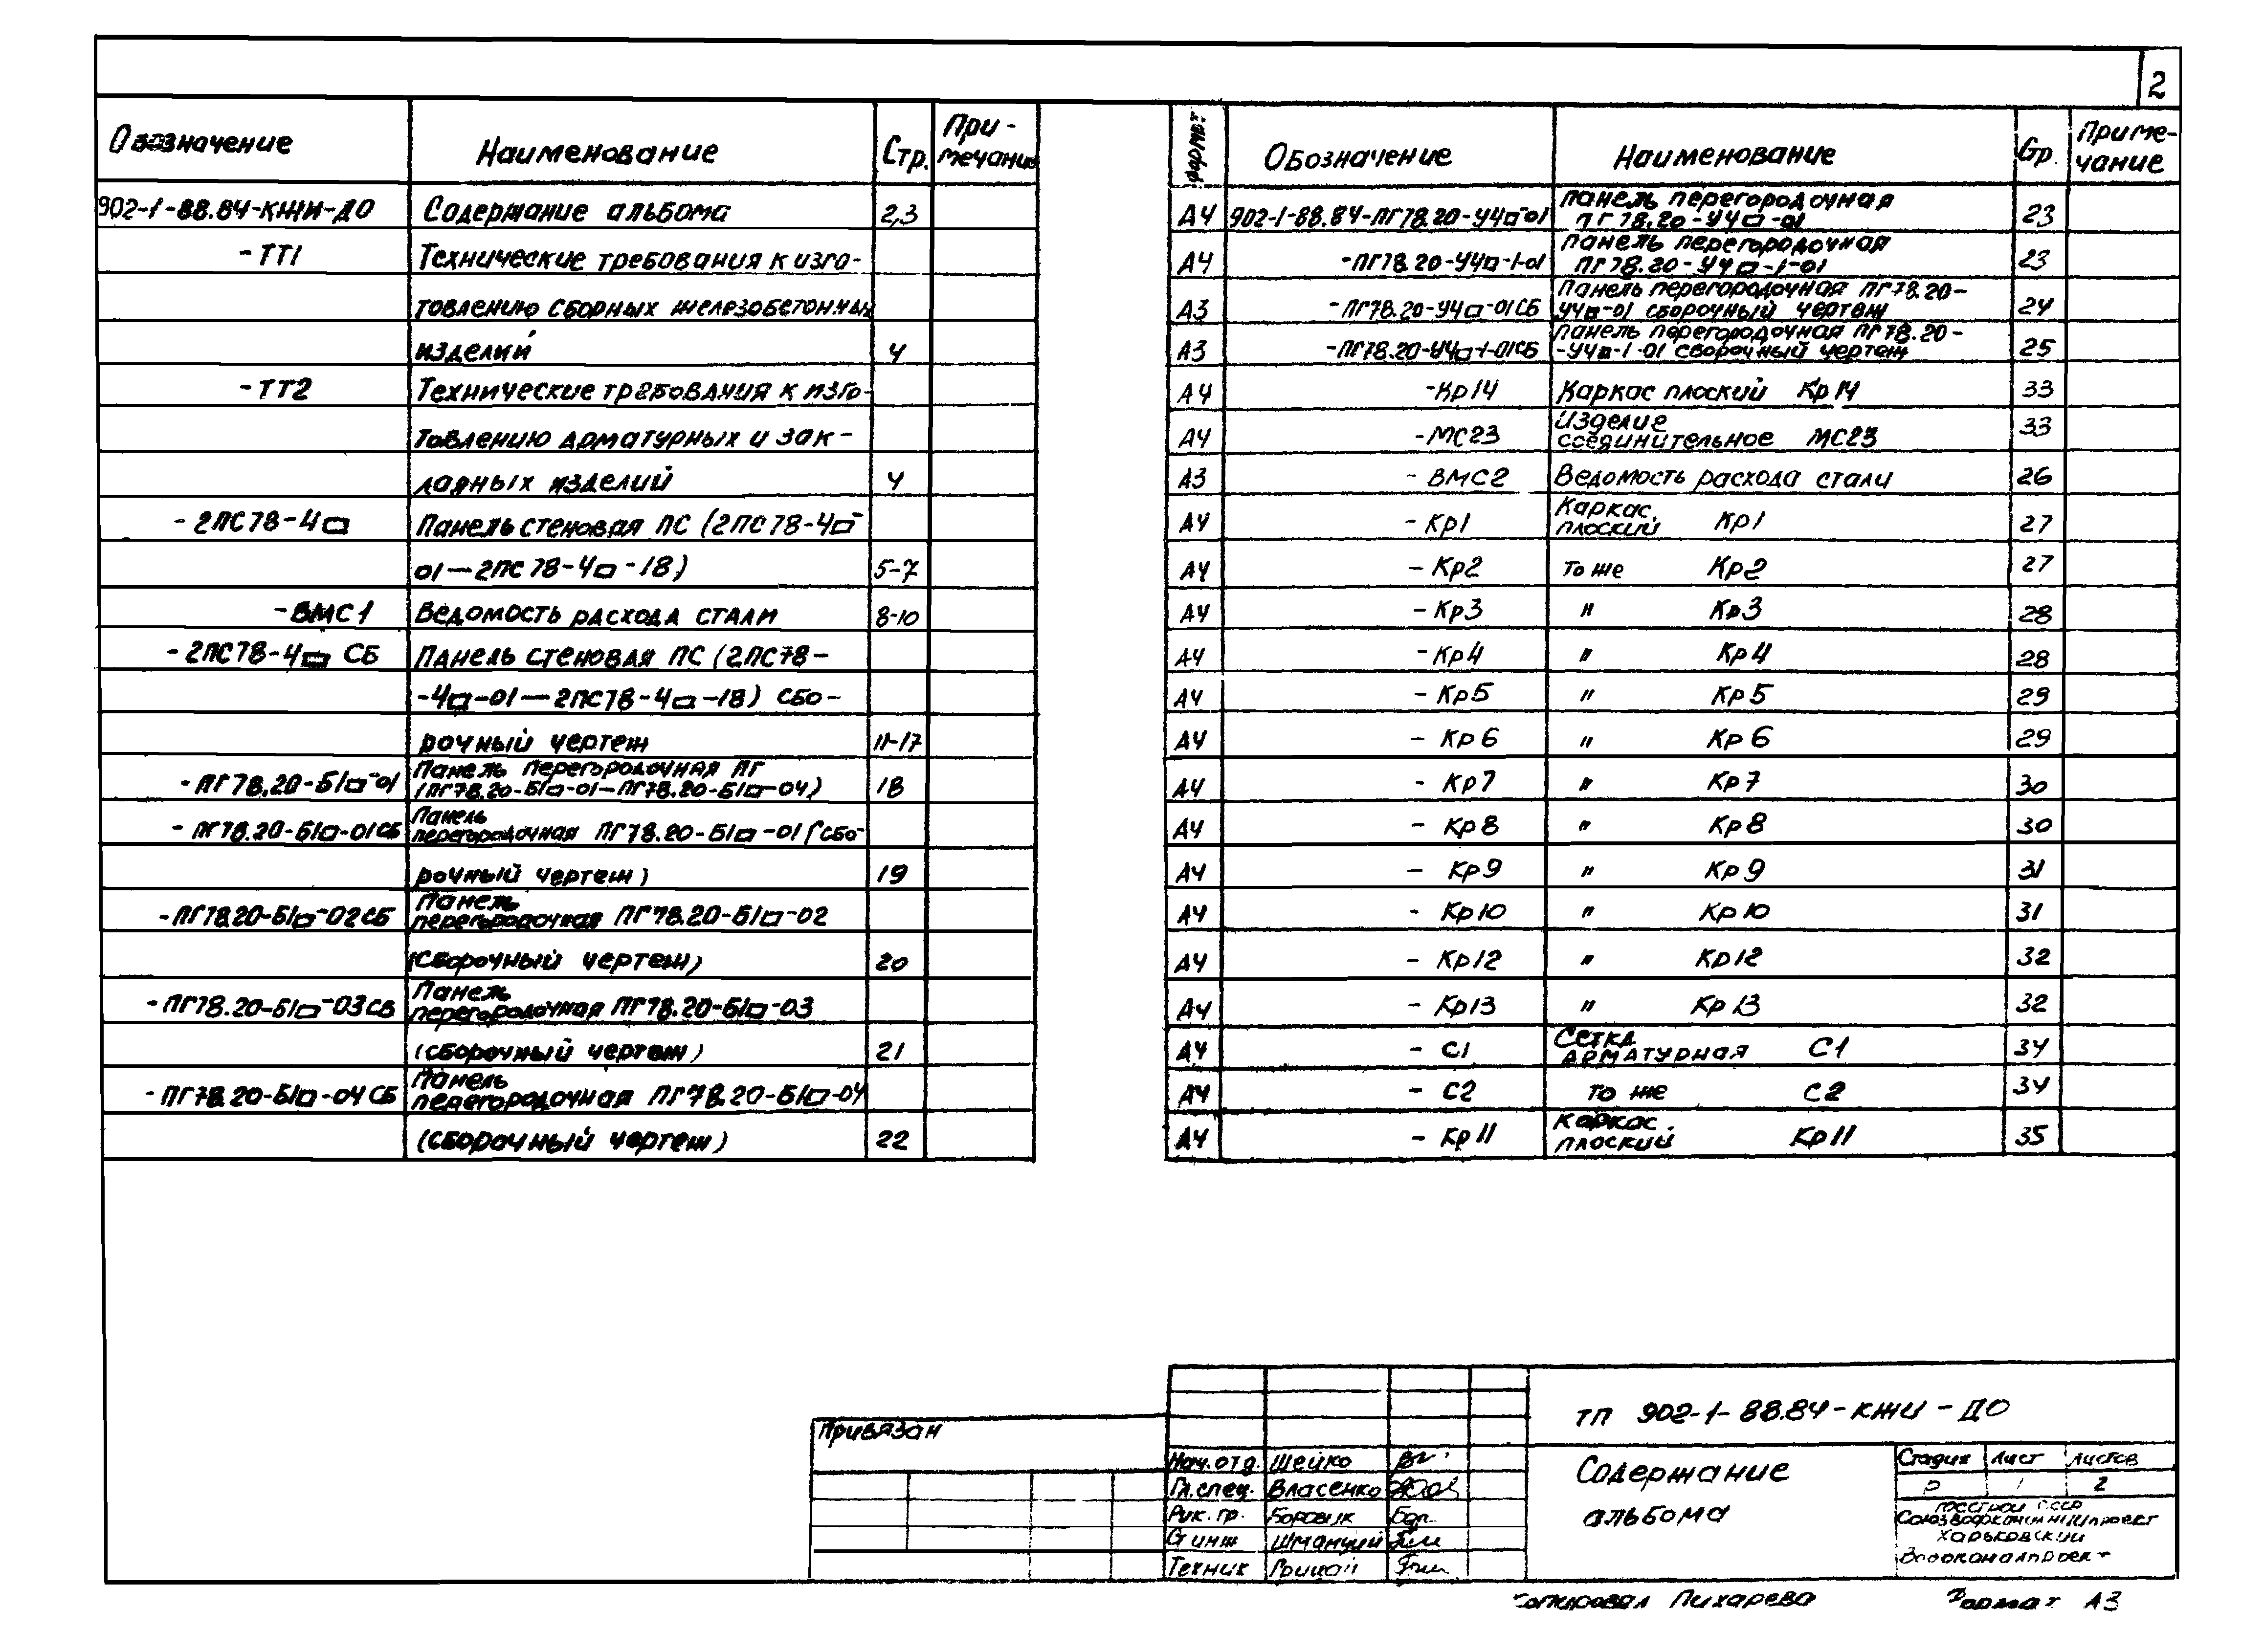 2
Обозначение Наименование Стр. При-
мечание
902-1-88.84-КЖИ-ДО Содержание альбома 2,3
-ТТ1 Технические требования к изго-
товлению сборных железобетонных
изделий 4
-ТТ2 Технические требования к изго-
товлению арматурных и зак-
ладных изделий 4
-2ПС78-4□ Панель стеновая ПС (2ПС78-4□-
01—2ПС78-4□-18) 5-7
-ВМС1 Ведомость расхода стали 8-10
-2ПС78-4□ СБ Панель стеновая ПС (2ПС78-
-4□-01—2ПС78-4□-18) сбо-
рочный чертеж 11-17
-ПГ78.20-Б1□-01 Панель перегородочная ПГ
(ПГ78.20-Б1□-01—ПГ78.20-Б1□-04) 18
-ПГ78.20-Б1□-01СБ Панель
перегородочная ПГ78.20-Б1□-01 (сбо-
рочный чертеж) 19
-ПГ78.20-Б1□-02СБ Панель
перегородочная ПГ78.20-Б1□-02
(сборочный чертеж) 20
-ПГ78.20-Б1□-03СБ Панель
перегородочная ПГ78.20-Б1□-03
(сборочный чертеж) 21
-ПГ78.20-Б1□-04СБ Панель
перегородочная ПГ78.20-Б1□-04
(сборочный чертеж) 22
Формат Обозначение Наименование Стр. Приме-
чание
А4 902-1-88.84-ПГ78.20-У4□-01 Панель перегородочная
ПГ78.20-У4□-01 23
А4 -ПГ78.20-У4□-1-01 Панель перегородочная
ПГ78.20-У4□-1-01 23
А3 -ПГ78.20-У4□-01СБ Панель перегородочная ПГ78.20-
У4□-01 сборочный чертеж 24
А3 -ПГ78.20-У4□-1-01СБ Панель перегородочная ПГ78.20-
-У4□-1-01 сборочный чертеж 25
А4 -Кр14 Каркас плоский Кр14 33
А4 -МС23 Изделие
соединительное МС23 33
А3 -ВМС2 Ведомость расхода стали 26
А4 -Кр1 Каркас
плоский Кр1 27
А4 -Кр2 то же Кр2 27
А4 -Кр3 " Кр3 28
А4 -Кр4 " Кр4 28
А4 -Кр5 " Кр5 29
А4 -Кр6 " Кр6 29
А4 -Кр7 " Кр7 30
А4 -Кр8 " Кр8 30
А4 -Кр9 " Кр9 31
А4 -Кр10 " Кр10 31
А4 -Кр12 " Кр12 32
А4 -Кр13 " Кр13 32
А4 -С1 Сетка
арматурная С1 34
А4 -С2 то же С2 34
А4 -Кр11 Каркас
плоский Кр11 35
Привязан
ТП 902-1-88.84-КЖИ-ДО
Нач.отд. Шейко
Гл.спец. Власенко
Рук.гр. Боровик
Ст инж Шманций
Техник Грицай
Содержание
альбома
Стадия Лист Листов
Р 1 2
Госстрой СССР
Союзводоканалниипроект
Харьковский
Водоканалпроект
Копировал Пихарева Формат А3